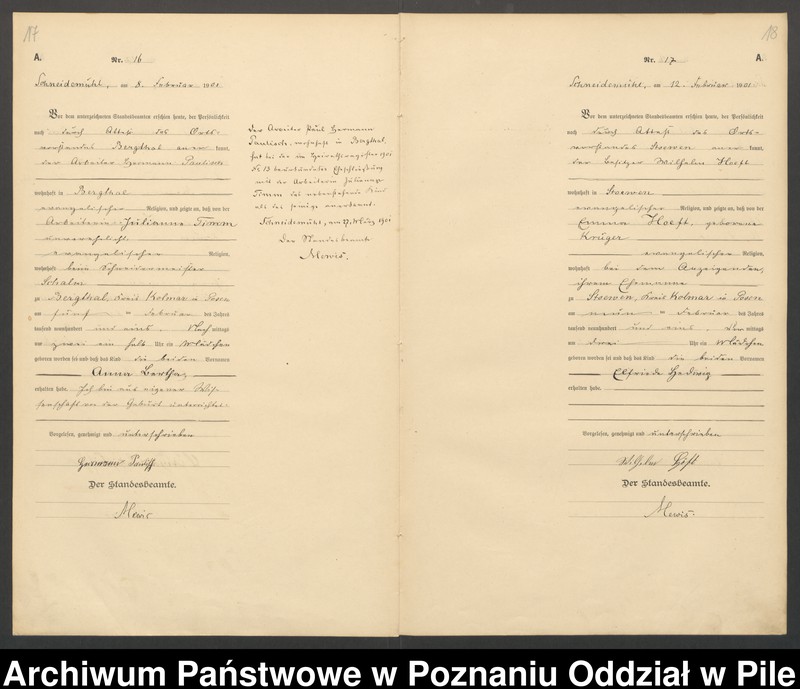 17
A.
Nr. 16
Schneidemühl, am 8. Februar 1901
Vor dem unterzeichneten Standesbeamten erschien heute, der Persönlichkeit
nach durch Attest des Orts-
vorstandes Bergthal aner kannt,
der Arbeiter Hermann
wohnhaft in Bergthal
evangelischer Religion, und zeigte an, daß von der
Arbeiterin Julianna Timm
unverehelicht
evangelischer Religion,
wohnhaft beim Schneidermeister
zu Bergthal, Kreis Kolmar in Posen
am fünf ten Februar des Jahres
tausend neunhundert und eins, Nach mittags
um zwei ein halb Uhr ein Mädchen
geboren worden sei und daß das Kind die beiden Vornamen
Anna Bertha
erhalten habe. Ich bin aus eigener Wis-
senschaft von der Geburt unterrichtet.
Vorgelesen, genehmigt und unterschrieben
Hermann
Der Standesbeamte.
Mewis
Der Arbeiter Paul Hermann
wohnhaft in Bergthal,
hat bei der im Heiratsregister 1901
Nr 13 beurkundeten Eheschließung
mit der Arbeiterin Julianna
Timm das nebenstehende Kind
als das seinige anerkannt.
Schneidemühl, am 27. März 1901
Der Standesbeamte
Mewis.
18
Nr. 17
A.
Schneidemühl, am 12. Februar 1901
Vor dem unterzeichneten Standesbeamten erschien heute, der Persönlichkeit
nach durch Attest des Orts-
vorstandes Stoewen aner kannt,
der Besitzer Wilhelm Hoeft
wohnhaft in Stoewen
evangelischer Religion, und zeigte an, daß von der
Emma Hoeft, geborene
Krüger
evangelischer Religion,
wohnhaft bei dem Anzeigenden,
ihrem Ehemanne
zu Stoewen, Kreis Kolmar in Posen
am neun ten Februar des Jahres
tausend neunhundert und eins, Vor mittags
um drei Uhr ein Mädchen
geboren worden sei und daß das Kind die beiden Vornamen
Elfriede Hedwig
erhalten habe.
Vorgelesen, genehmigt und unterschrieben
Wilhelm Höft
Der Standesbeamte.
Mewis.
Archiwum Państwowe w Poznaniu Oddział w Pile